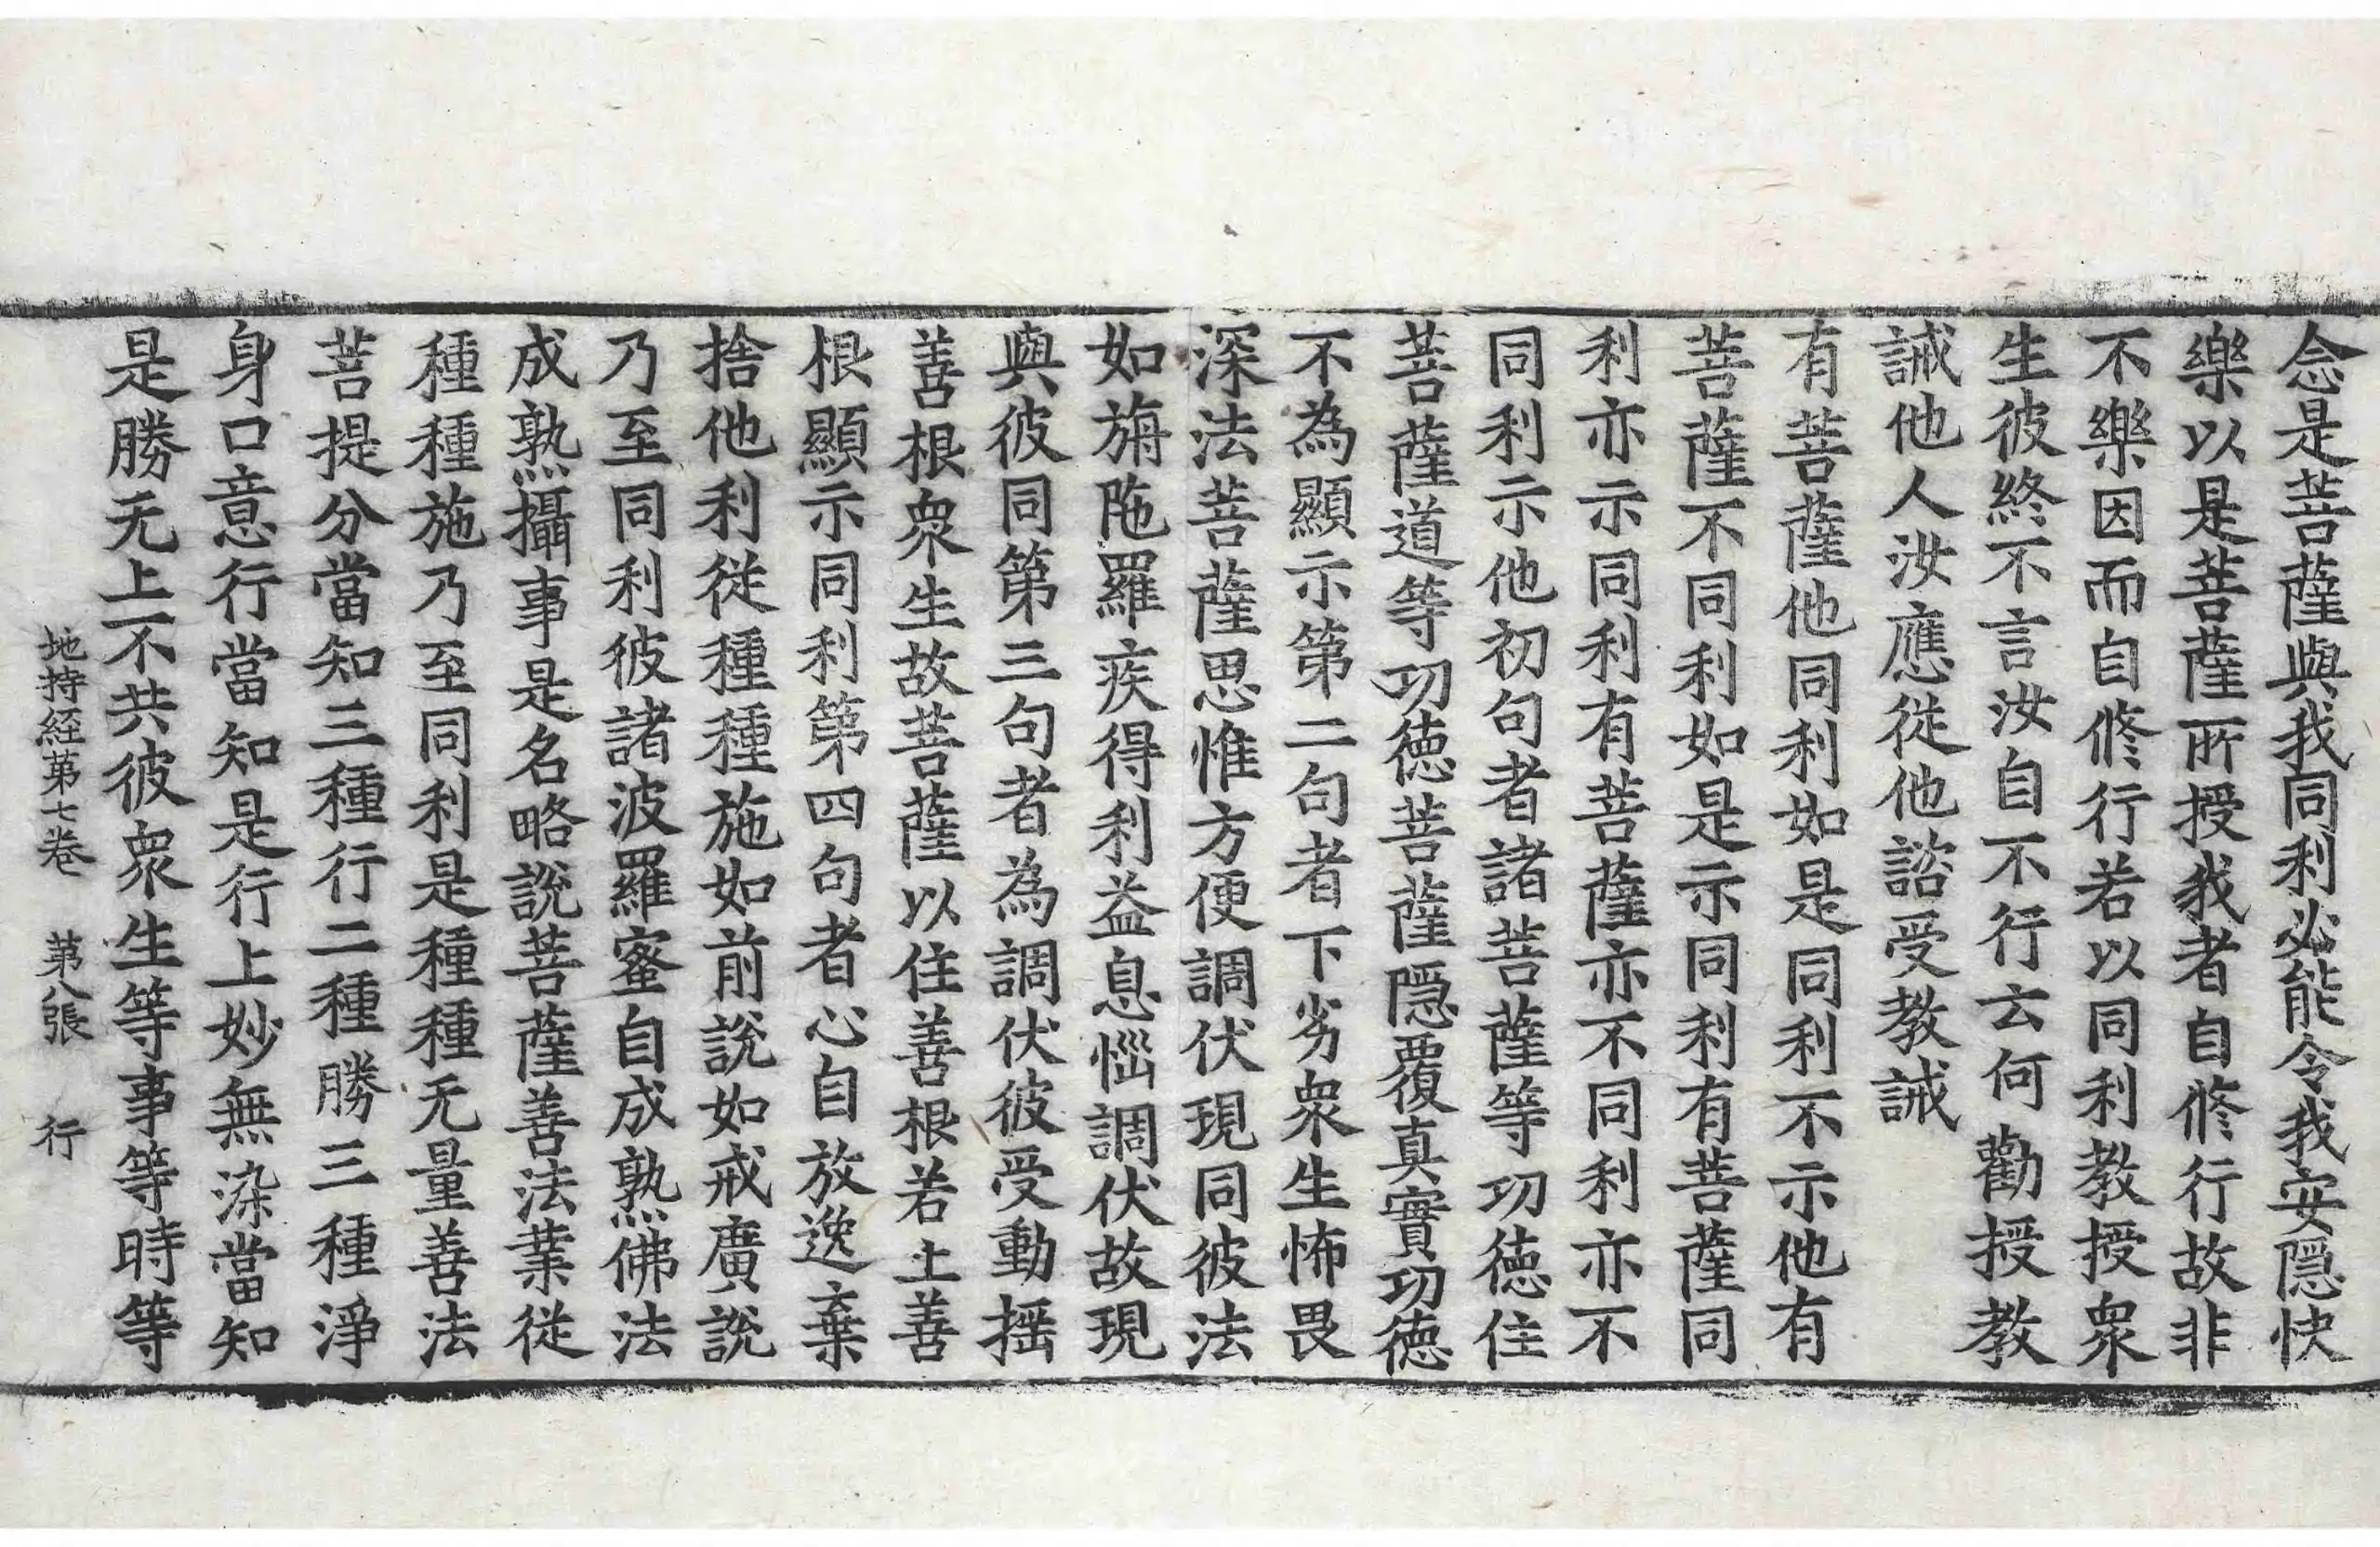 念是菩薩與我同利必能令我安隱快
樂以是菩薩所授我者自修行故非
不樂因而自修行若以同利教授衆
生彼終不言汝自不行云何勸授教
誡他人汝應從他諮受教誡
有菩薩他同利如是同利不示他有
菩薩不同利如是示同利有菩薩同
利亦示同利有菩薩亦不同利亦不
同利示他初句者諸菩薩等功德住
菩薩道等功德菩薩隱覆真實功德
不為顯示第二句者下劣衆生怖畏
深法菩薩思惟方便調伏現同彼法
如旃陁羅疾得利益息惱調伏故現
與彼同第三句者為調伏彼受動揺
善根衆生故菩薩以住善根若上善
根顯示同利第四句者心自放逸棄
捨他利從種種施如前說如戒廣說
乃至同利彼諸波羅蜜自成熟佛法
成熟攝事是名略說菩薩善法業從
種種施乃至同利是種種无量善法
菩提分當知三種行二種勝三種淨
身口意行當知是行上妙無染當知
是勝无上不共彼衆生等事等時等
地持經第七卷 第八張 行